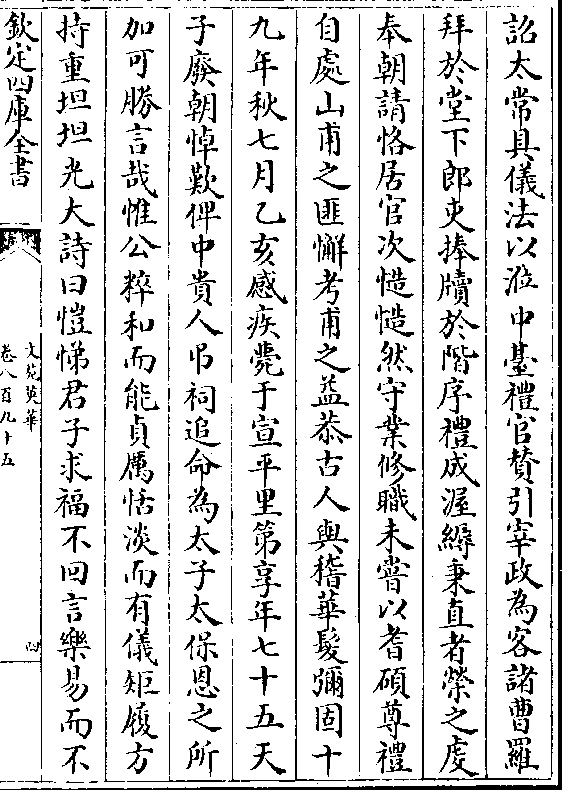 詔太常具儀法以涖中臺禮官贊引宰政為客諸曹羅
拜於堂下郎吏捧牘於階序禮成渥縟秉直者榮之虔
奉朝請恪居官次慥慥然守業修職未嘗以耆碩尊禮
自處山甫之匪懈考甫之益恭古人與稽華髮彌固十
九年秋七月乙亥感疾薨于宣平里第享年七十五天
子廢朝悼歎俾中貴人弔祠追命為太子太保恩之所
加可勝言哉惟公粹和而能貞厲恬淡而有儀矩履方
持重坦坦光大詩曰愷悌君子求福不回言樂易而不
欽定四庫全書
文苑英華
卷八百九十五
四